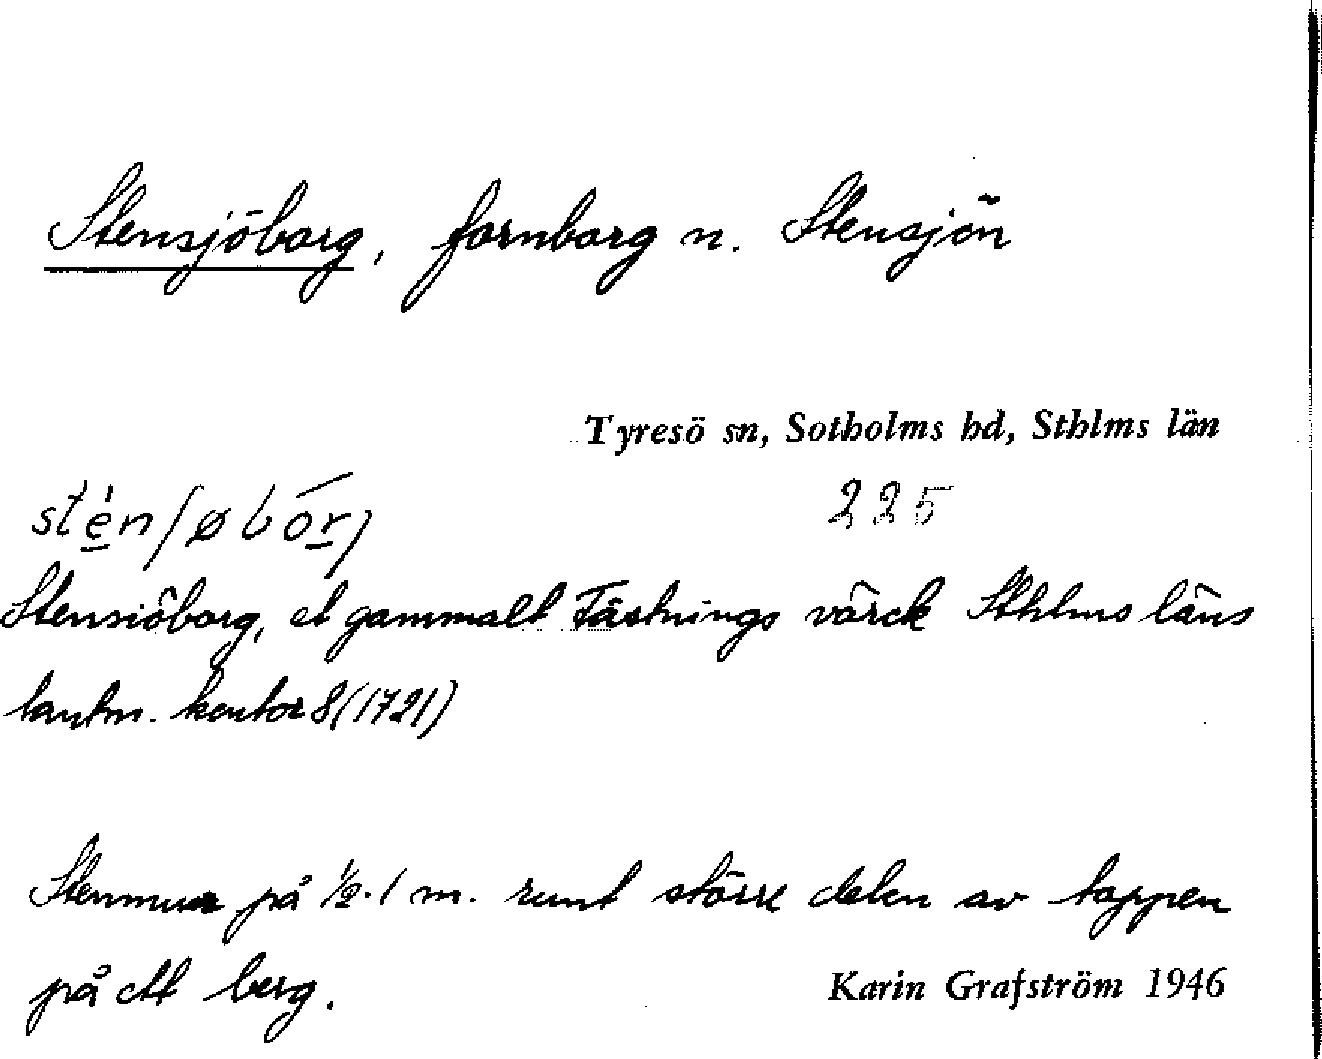 Stensjöborg, fornborg n. Stensjön
Tyresö sn, Sotholms hd, Sthlms län
225
Stensiöborg, et gammalt Fästnings värck Sthlms läns
lantm. kontor 8 (1721)
Stenmur på 1/2-1 m. runt större delen av toppen
på ett berg.
Karin Grafström 1946